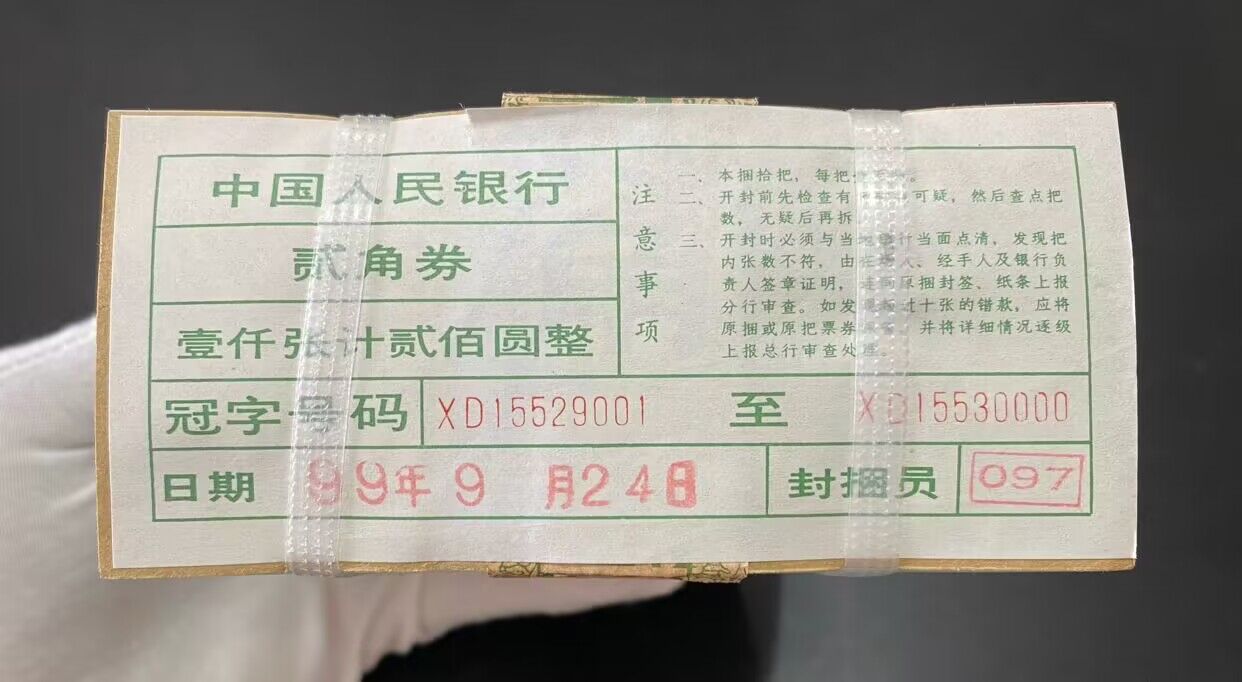 中国人民银行
贰角券
壹仟张计贰佰圆整
注意事项
一、本捆拾把，每把
二、开封前先检查有 可疑，然后查点把
数，无疑后再拆
三、开封时必须与当 行当面点清，发现把
内张数不符，由 人、经手人及银行负
责人签章证明， 原捆封签、纸条上报
分行审查。如发 十张的错款，应将
原捆或原把票券 并将详细情况逐级
上报总行审查处理。
冠字号码 XD15529001 至 XD15530000
日期 99年9月24日 封捆员 097